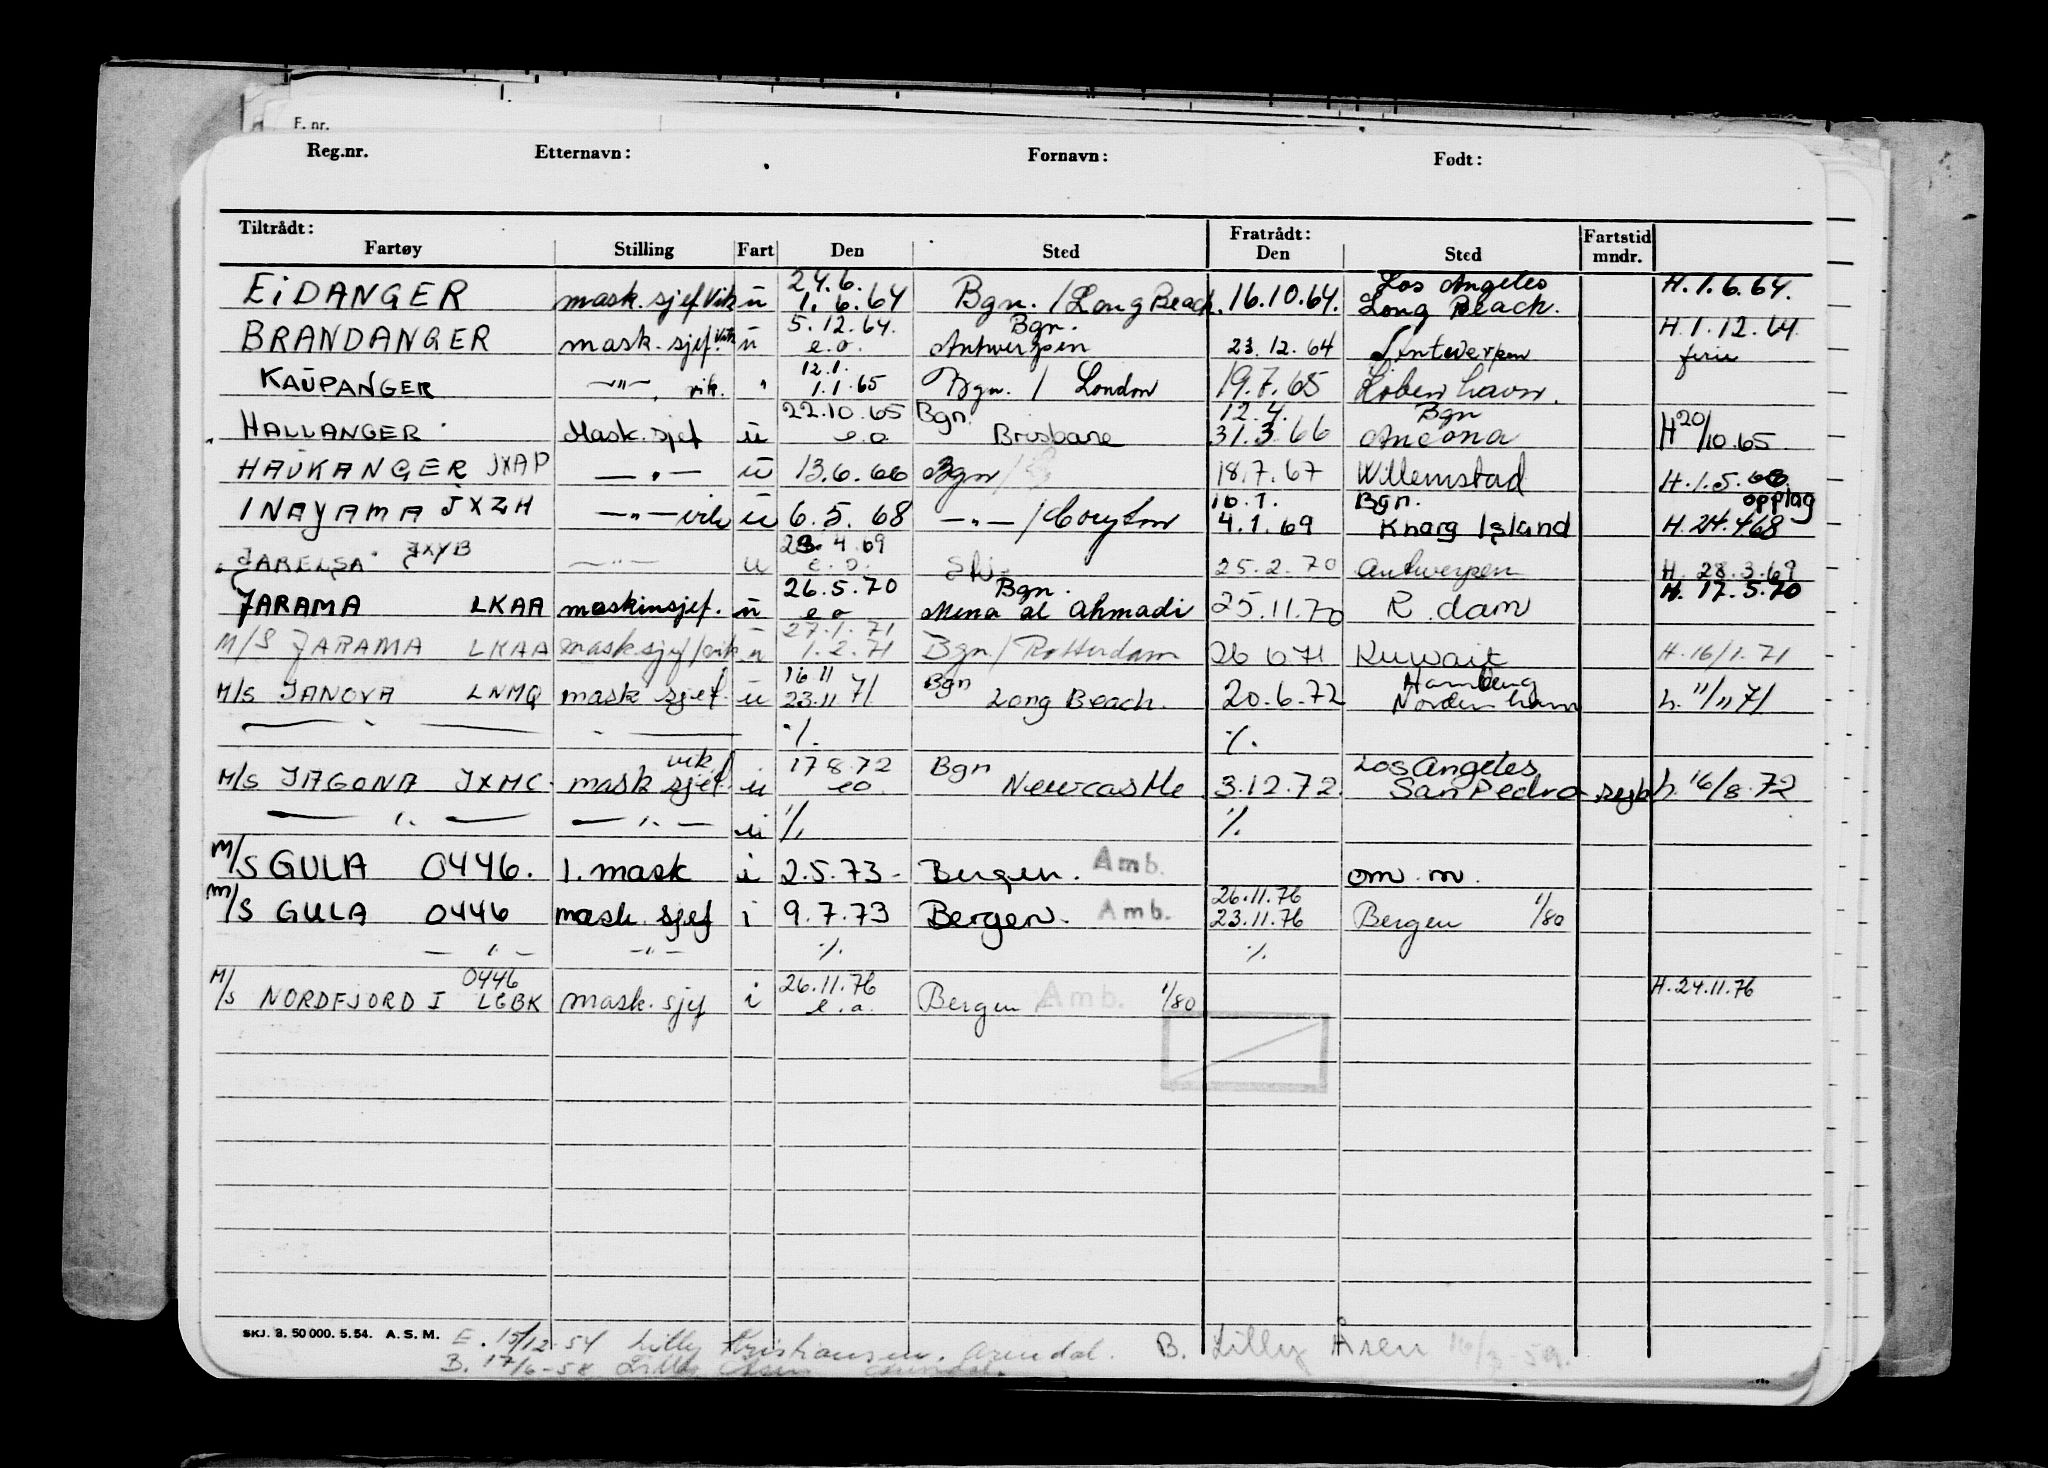 F. nr.
Reg.nr. Etternavn: Fornavn: Født:
Tiltrådt: Fratrådt: Fartstid
Fartøy Stilling Fart Den Sted Den Sted mndr.
24.6. Los Angeles H.1.6.64.
EiDANGER mask.sjef Vik u 1.6.64 Bgn. / Long Beach. 16.10.64. Long Beach.
5.12.64. Bgn. H.1.12.64
BRANDANGER mask. sjef. Vik u e.o. Antwerpen 23.12.64 Antwerpen ferie
12.1.
KAUPANGER —"— vik. " 1.1.65 Bgn. / London 19.7.65 København.
22.10.65 Bgn. 12.4. Bgn
HALLANGER Mask.sjef u e.o Brisbane 31.3.66 Ancona H 20/10.65
HAUKANGER JXAP —"— u 13.6.66 Bgn 18.7.67 Willemstad H.1.5.68
10.1. Bgn. opplag
INAYAMA JXZH —"— vik u 6.5.68 —"— / Coryton 4.1.69 Knarg Island H.24.4.68
23.4.69
JARELSA JXYB —"— u e.o. 25.2.70 Antwerpen H. 28.3.69
26.5.70 Bgn. H. 17.5.70
JARAMA LKAA maskinsjef. u e o Mena al Ahmadi 25.11.70 R.dam
27.1.71
M/S JARAMA LKAA mask.sjef/vik u 1.2.71 Bgn / Rotterdam 26 6 71 Kuwait H.16/1.71
16 11 Bgn Hamburg
M/S JANOVA LNMQ mask sjef. u 23.11 71 Long Beach. 20.6.72 Nordenham h. 11/11 71
— " — ./. ./.
vik 17 8.72 Bgn Los Angeles
M/S JAGONA JXMC. mask sjef. u eo. Newcastle 3.12.72. San Pedro sykd h. 16/8.72
— ". — — ". — u ./. ./.
M/S GULA 0446. 1. mask i 2.5.73- Bergen. Amb. om. m.
26.11.76
M/S GULA 0446 mask. sjef i 9.7.73 Bergen. Amb. 23.11.76 Bergen 1/80
— " — —"— ./. ./.
0446 26.11.76 H.24.11.76
M/S NORDFJORD I LGBK mask.sjef i e.o. Bergen Amb. 1/80
SKJ. 3. 50 000. 5.54. A.S.M. E. 15/12-54 Lilly Kristiansen. Arendal. B. Lilly Åsen 16/3-59.
B. 17/6-58 Lilly Åsen Arendal.